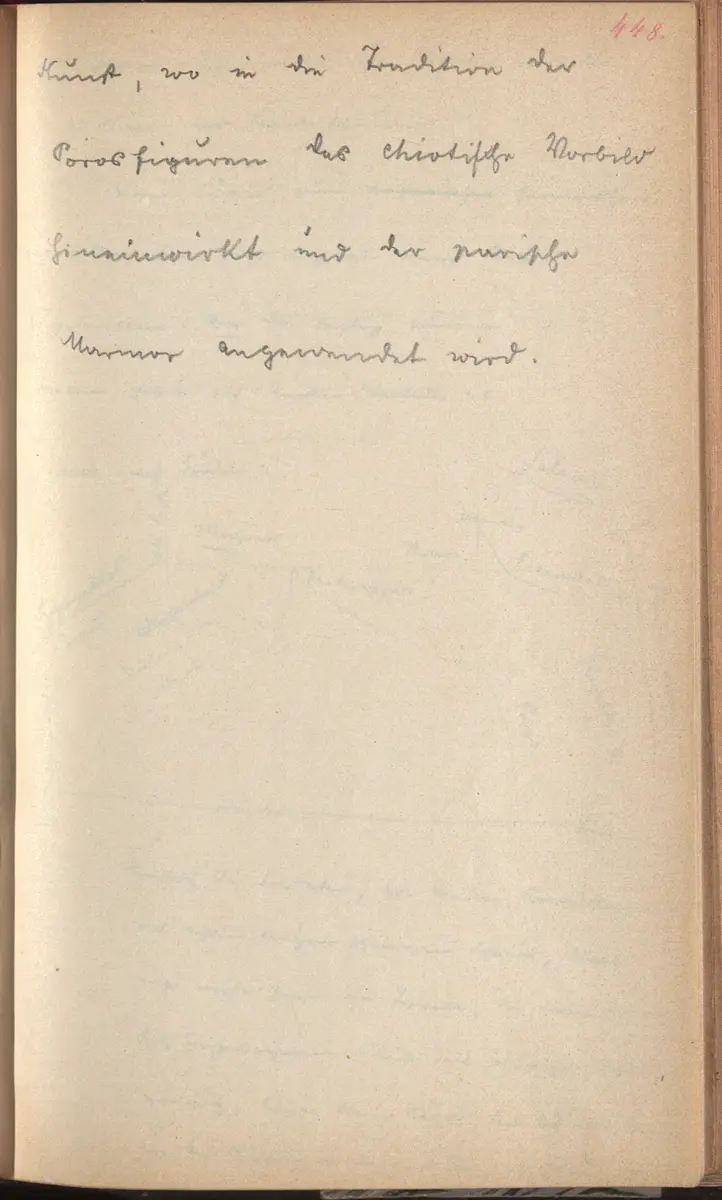 448.
Kunst, wo in die Tradition der
Porosfiguren das chiotische Vorbild
hineinwirkt und der parische
Marmor angewendet wird.